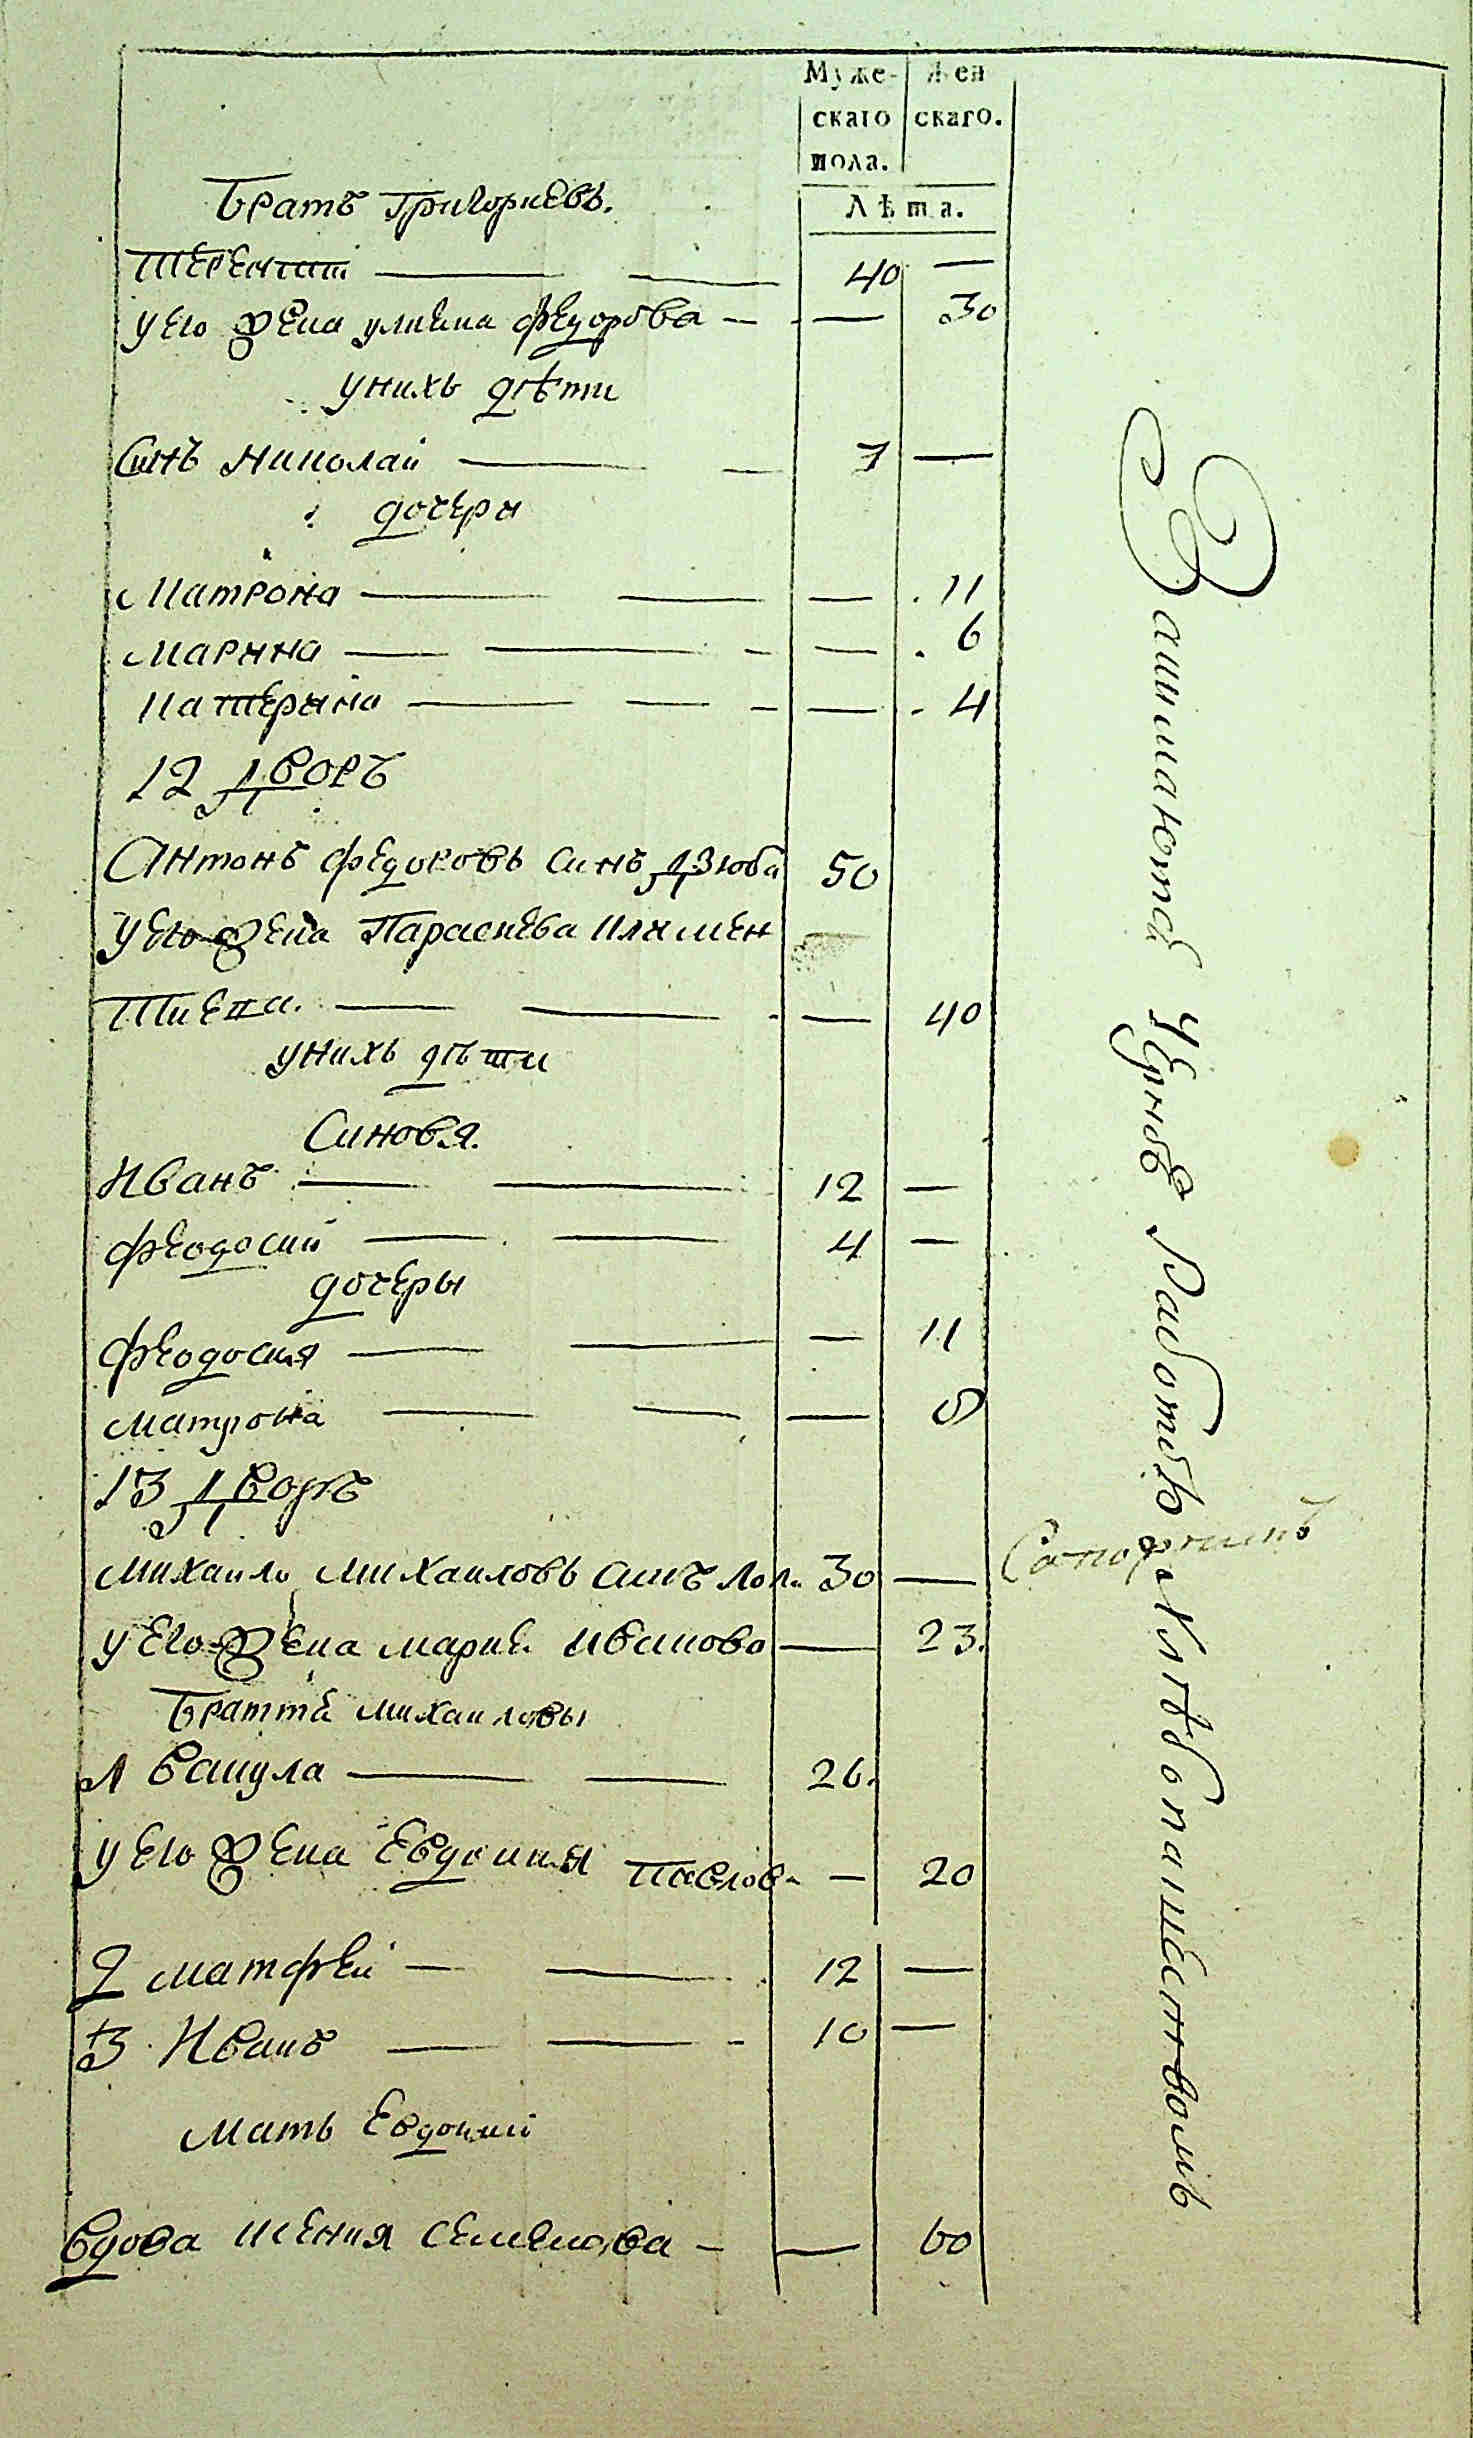 Муже- Жен
скаго скаго.
пола.
Лѣта.
Братъ Григориевъ.
Терентий — — 40 —
у его жена улиена федорова — — 30
унихъ дѣти
Синъ николай — — 7 —
дочеры
Матрона — — — 11
Марина — — — — 6
катерина — — — — 4
12 Дворъ
Антонъ федоровъ синъ Дзюба 50
у его жена Параскева климен
тиева. — — — 40
унихъ дѣти
Синовя.
Иванъ — — 12 —
феодосий — — 4 —
дочеры
феодосия — — — 11
матрона — — — 8
13 Дворъ
михаило михаиловъ синъ 30 —
у его жена марие иванова — 23.
Браттѣ михаиловы
А Вакула — — 26.
у его жена Евдокия Павлова — 20
2 матфей — — 12 —
3 Иванъ — — 10 —
мать Евдокии
вдова ксения семенова — — 60
Занимаются Черною Работою и хлѣбопашествомъ